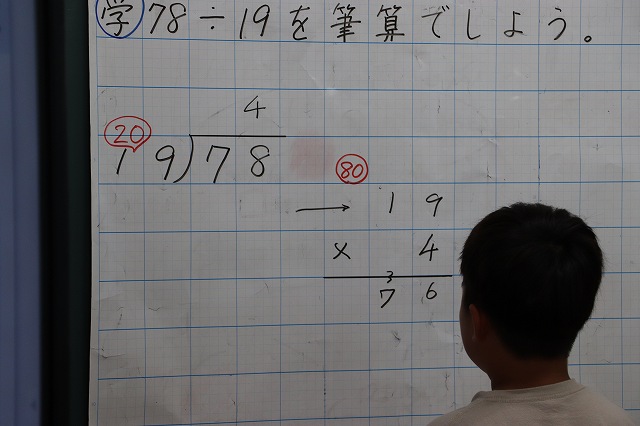 学 78÷19を筆算でしよう。
4
20
19)78
80
→ 19
× 4
3
76